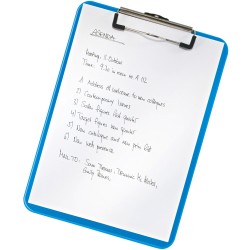 AGENDA
Meeting: 5 October
Time: 9.30 in room A 02
1) Address of welcome to new colleagues
2) Contemporary issues
3) Sales figures last quarter
4) Target figures new quarter
5) New catalogue and new price list
6) New web presence
Mail to: